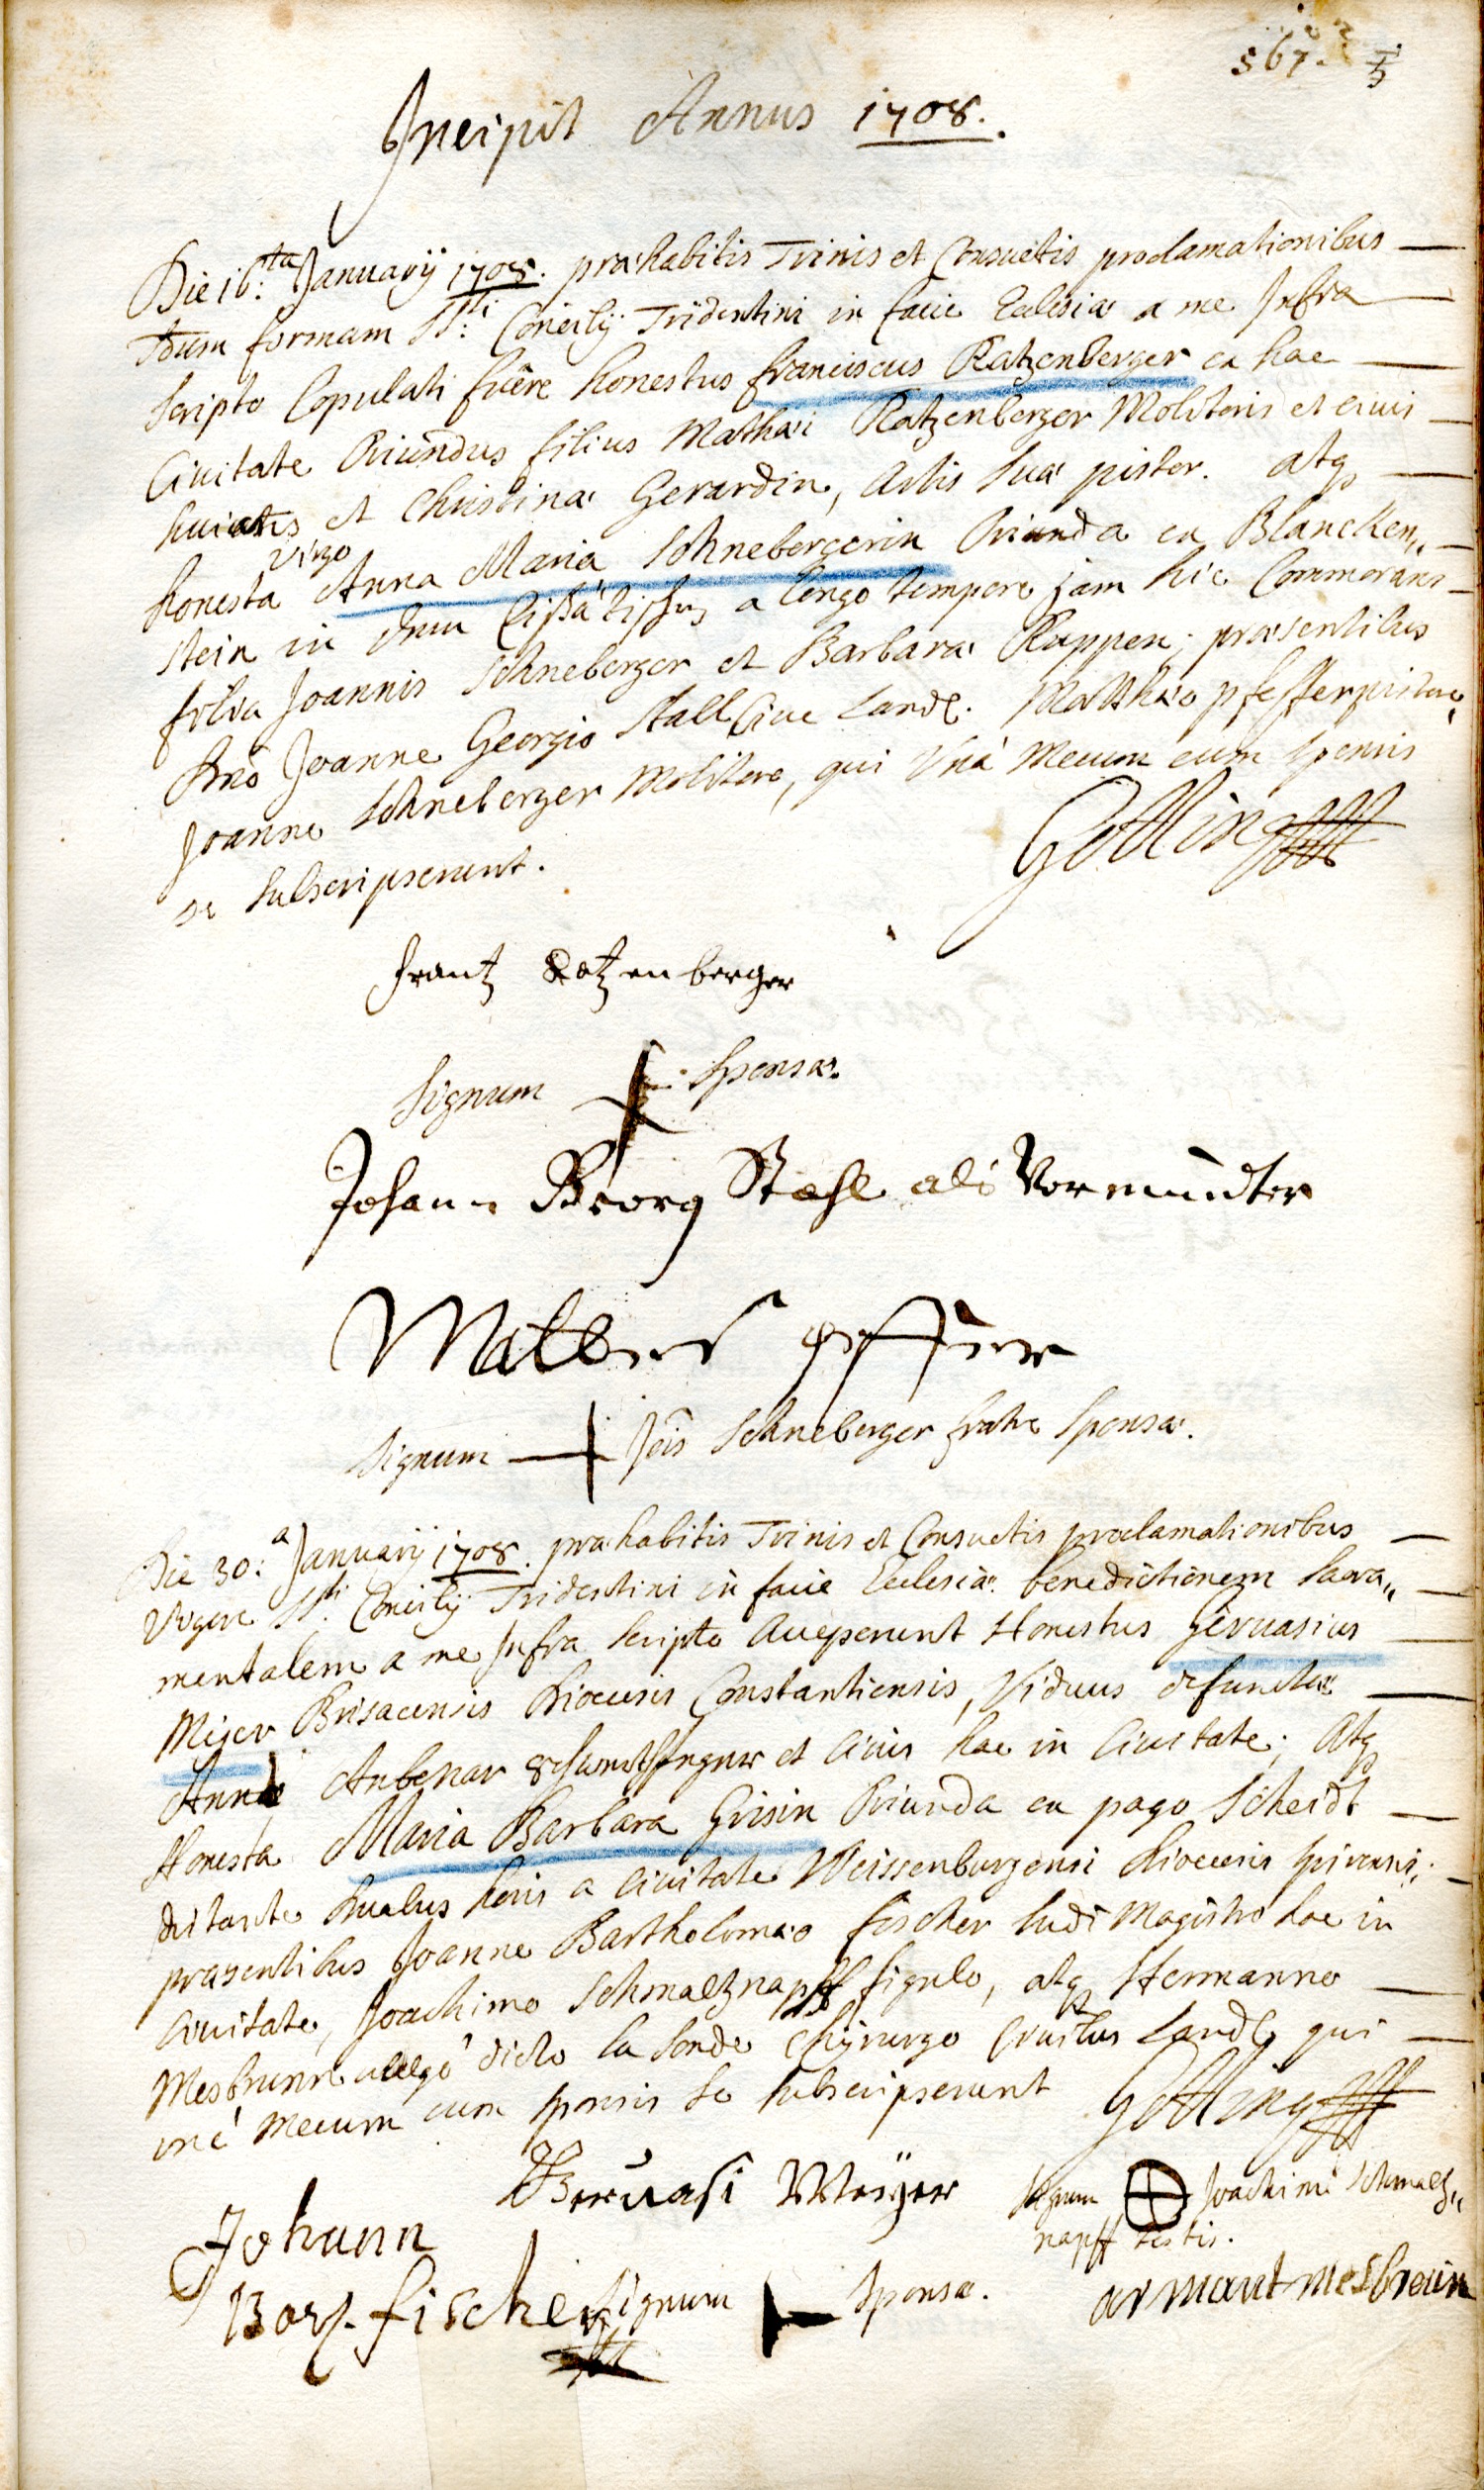 567.
Incipit Annus 1708.
Die 16:ta Januarÿ 1708. præhabitis Trinis et Consuetis proclamationibus
formam SSti: Concilÿ Tridentini in facie Ecclesiæ a me Infra
Scripto Copulati fuêre honestus franciscus Ratzenberger ex hac
Ciuitate Oriundus filius Mathæi Ratzenberger Molitoris et ciuis
huiatis et Christinæ Gerardin, Artis Suæ pistor. atq
honesta Virgo Anna Maria Schnebergerin Oriunda ex Blancken„
stein in a longo tempore jam hic Commorans
filia Joannis Schneberger et Barbaræ Ruppen; præsentibus
Dno Joanne Georgio Stall Ciue Land. Matthæo pfeffer
Joanne Schneberger Molitore, qui Vnà Mecum cum Sponsis
se Subscripserunt.
Gottling
frantz Ratzenberger
Signum Sponsæ.
Johann Georg Stahl als Vormundter
Signum Jois Schneberger fratre Sponsæ.
Die 30:a Januarÿ 1708. præhabitis Trinis et Consuetis proclamationibus
Vigore SSti: Concilÿ Tridentini in facie Ecclesiæ benedictionem Sacra„
mentalem a me Infra Scripto Acceperunt Honestus Geruasius
Meÿer Brisacensis Dioecesis Constantiensis, Viduus defunctæ
Annæ et Ciuis hac in Ciuitate; Atq
Honesta Maria Barbara Grisin Oriunda ex pago Scheidt
distante duabus horis a Ciuitate Weissenburgensi Dioecesis Spirensis;
præsentibus Joanne Bartholomæo fischer ludi Magistro hac in
Ciuitate, Joachimo Schmaltznapff figulo, atq Hermanno
Mesbrunn vulgò dicto la Sonde Chÿrurgo Ciuitatis Land qui
unà Mecum cum Sponsis Se Subscripserunt
Gottling
Geruasi Meÿer
Signum Joachimi Schmaltz„
napff testis.
Johann
fischer
Signum Sponsæ.
armant mesbrein